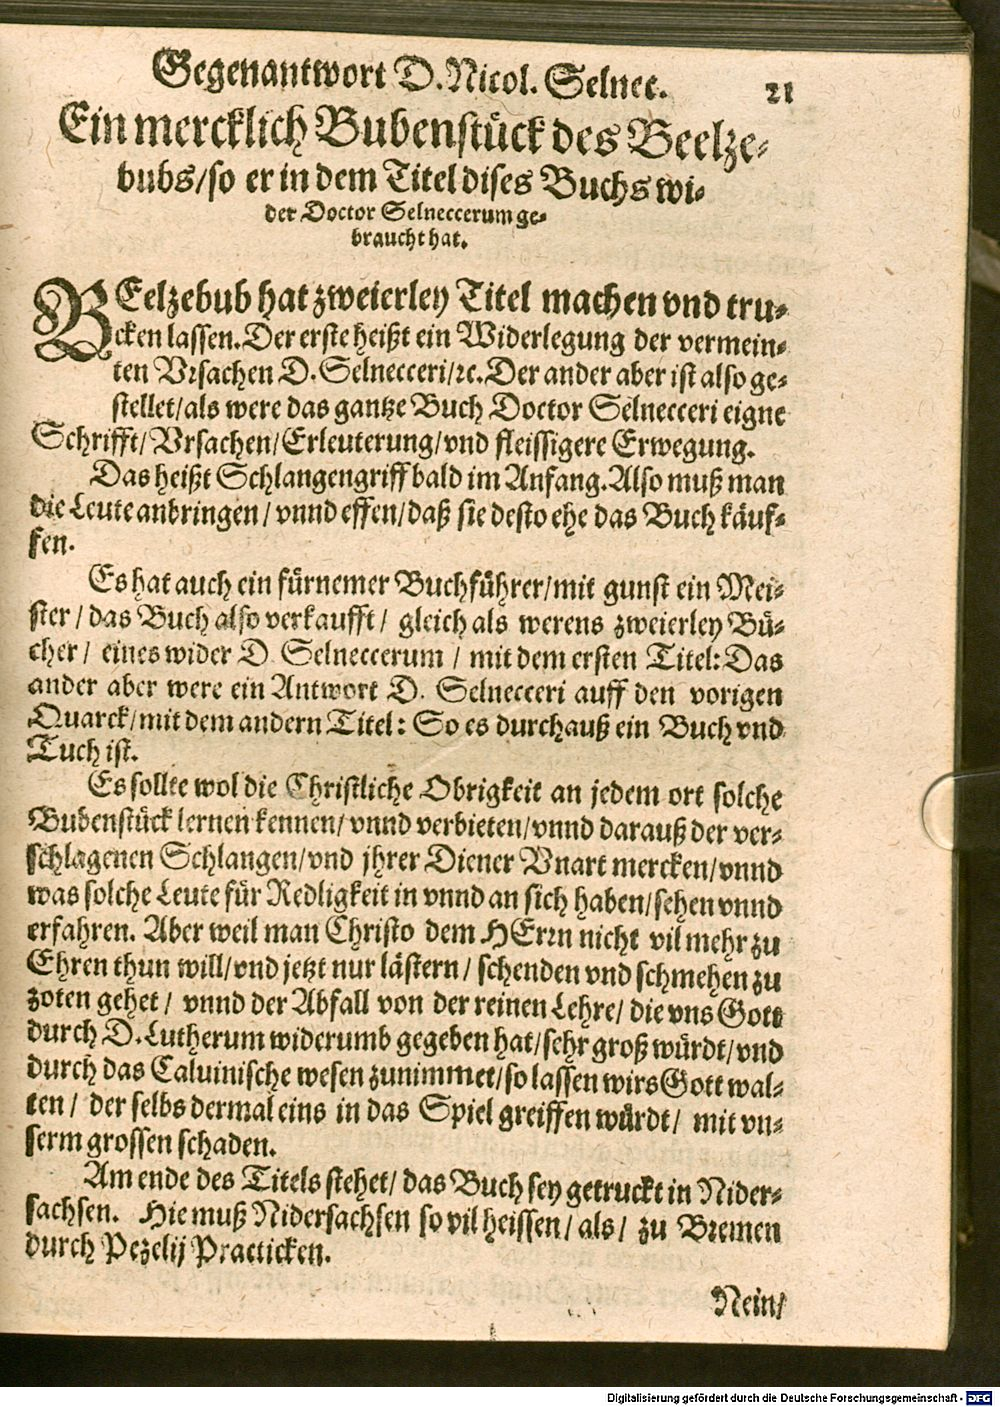 Gegenantwort D. Nicol. Selnec. 21
Ein mercklich Bubenstück des Beelze-
bubs/so er in dem Titel dises Buchs wi-
der Doctor Selneccerum ge-
braucht hat.
BEelzebub hat zweierley Titel machen vnd tru-
cken lassen. Der erste heißt ein Widerlegung der vermein-
ten Vrsachen D. Selnecceri/rc. Der ander aber ist also ge-
stellet/als were das gantze Buch Doctor Selnecceri eigne
Schrifft/Vrsachen/Erleuterung/vnd fleissigere Erwegung.
Das heißt Schlangengriff bald im Anfang. Also muß man
die Leute anbringen/vnnd effen/daß sie desto ehe das Buch käuf-
fen.
Es hat auch ein fürnemer Buchführer/mit gunst ein Mei-
ster/das Buch also verkaufft/gleich als werens zweierley Bü-
cher/eines wider D. Selneccerum/mit dem ersten Titel: Das
ander aber were ein Antwort D. Selnecceri auff den vorigen
Quarck/mit dem andern Titel: So es durchauß ein Buch vnd
Tuch ist.
Es sollte wol die Christliche Obrigkeit an jedem ort solche
Bubenstück lernen kennen/vnnd verbieten/vnnd darauß der ver-
schlagenen Schlangen/vnd jhrer Diener Vnart mercken/vnnd
was solche Leute für Redligkeit in vnnd an sich haben/sehen vnnd
erfahren. Aber weil man Christo dem HErrn nicht vil mehr zu
Ehren thun will/vnd jetzt nur lästern/schenden vnd schmehen zu
zoten gehet/vnnd der Abfall von der reinen Lehre/die vns Gott
durch D. Lutherum widerumb gegeben hat/sehr groß würdt/vnd
durch das Caluinische wesen zunimmet/so lassen wirs Gott wal-
ten/der selbs dermal eins in das Spiel greiffen würdt/mit vn-
serm grossen schaden.
Am ende des Titels stehet/das Buch sey getruckt in Nider-
sachsen. Hie muß Nidersachsen so vil heissen/als/zu Bremen
durch Pezelij Practicken.
Nein/
Digitalisierung gefördert durch die Deutsche Forschungsgemeinschaft - DFG